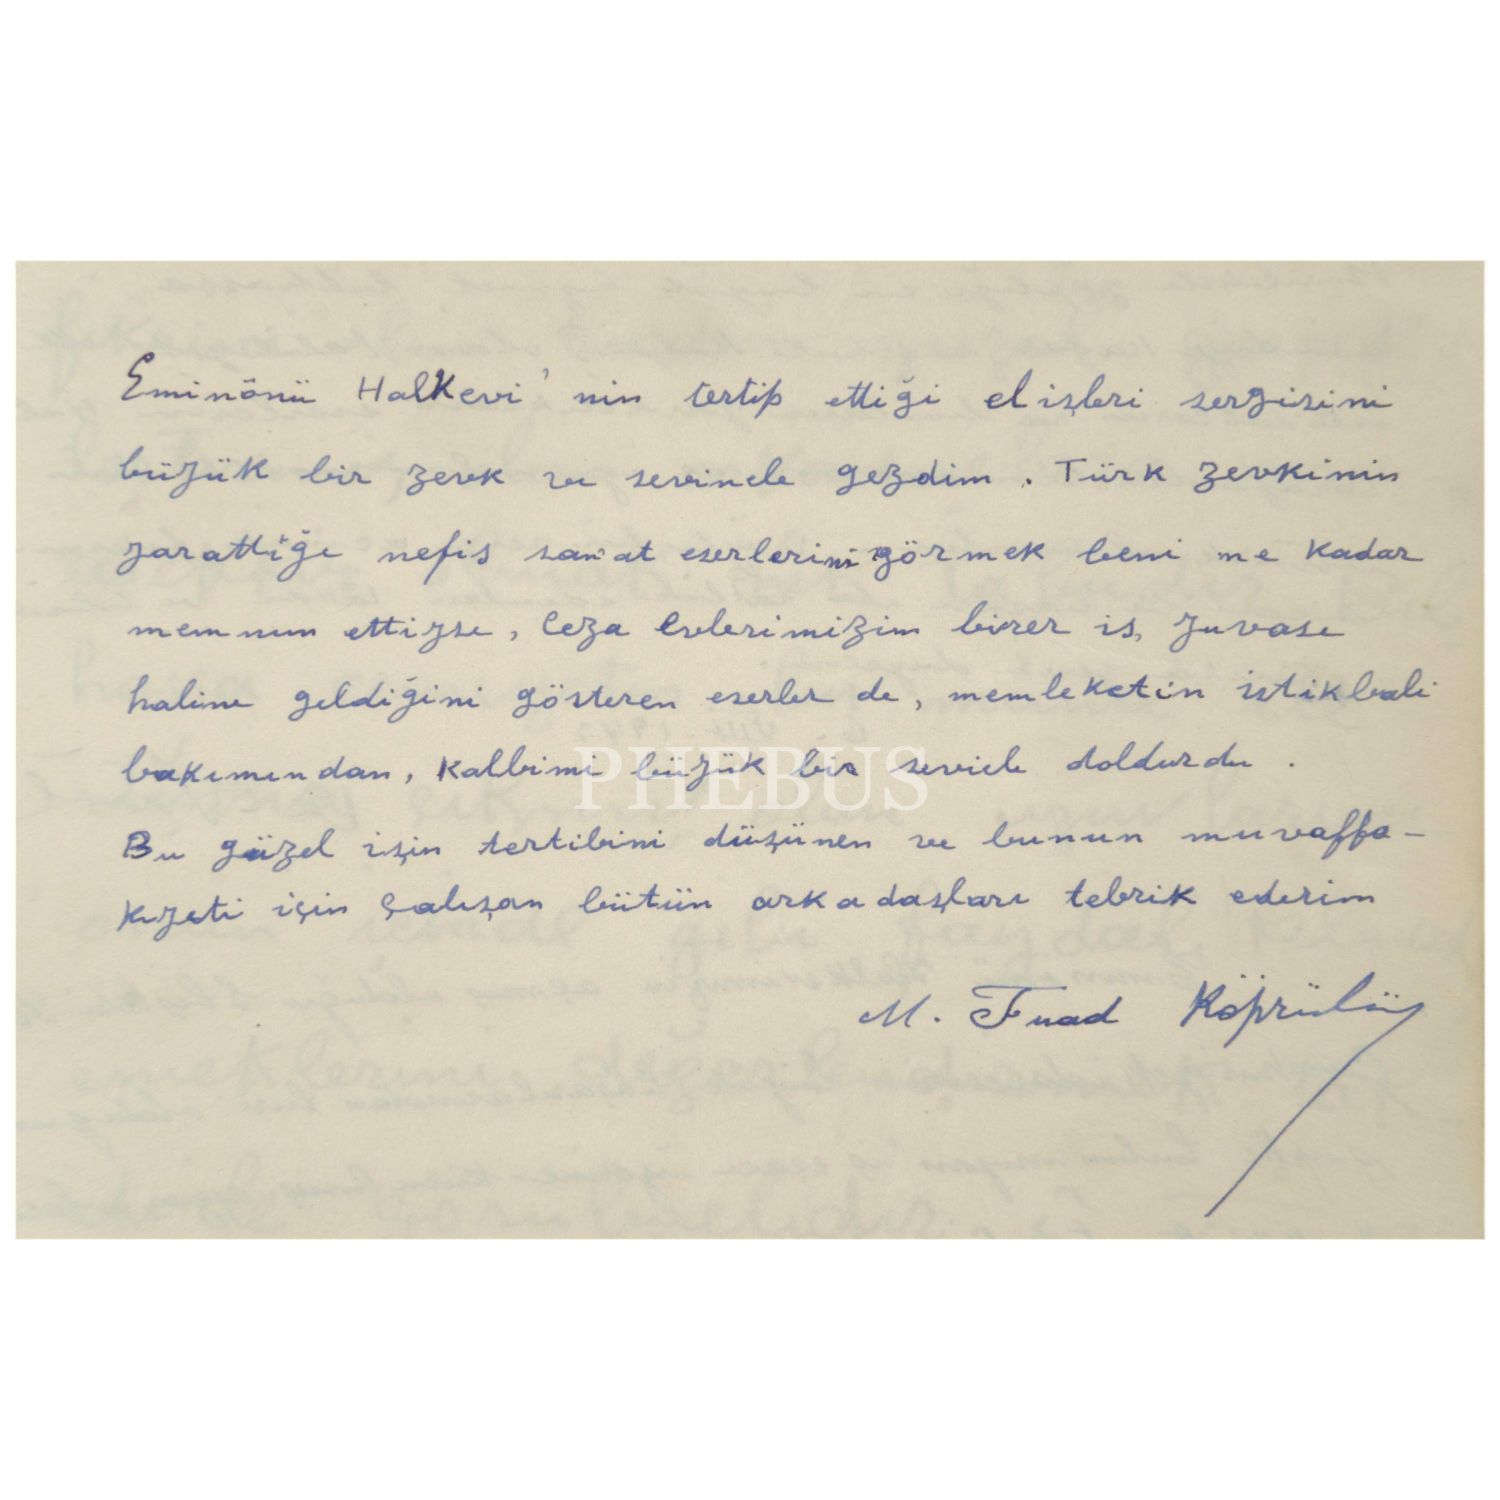 Eminönü Halkevi'nin tertip ettiği el işleri sergisini
büyük bir zevk ve sevincle gezdim. Türk zevkinin
yarattığı nefis san'at eserlerini görmek beni ne kadar
memnun ettiyse, Ceza Evlerimizin birer iş yuvası
haline geldiğini gösteren eserler de, memleketin istikbali
bakımından, kalbimi büyük bir sevicle doldurdu.
PHEBUS
Bu güzel işin tertibini düşünen ve bunun muvaffa-
kıyeti için çalışan bütün arkadaşları tebrik ederim
M. Fuad Köprülü